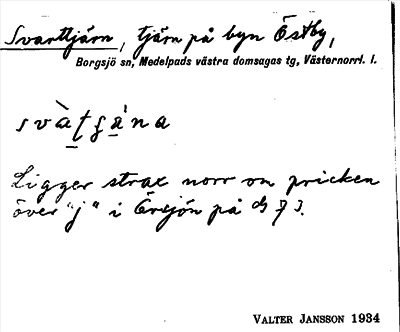 Svarttjärn, tjärn på byn Östby,
Borgsjö sn, Medelpads västra domsagas tg, Västernorrl. l.
Ligger strax norr om pricken
över "j" i Örsjön på dG 7 3.
VALTER JANSSON 1934